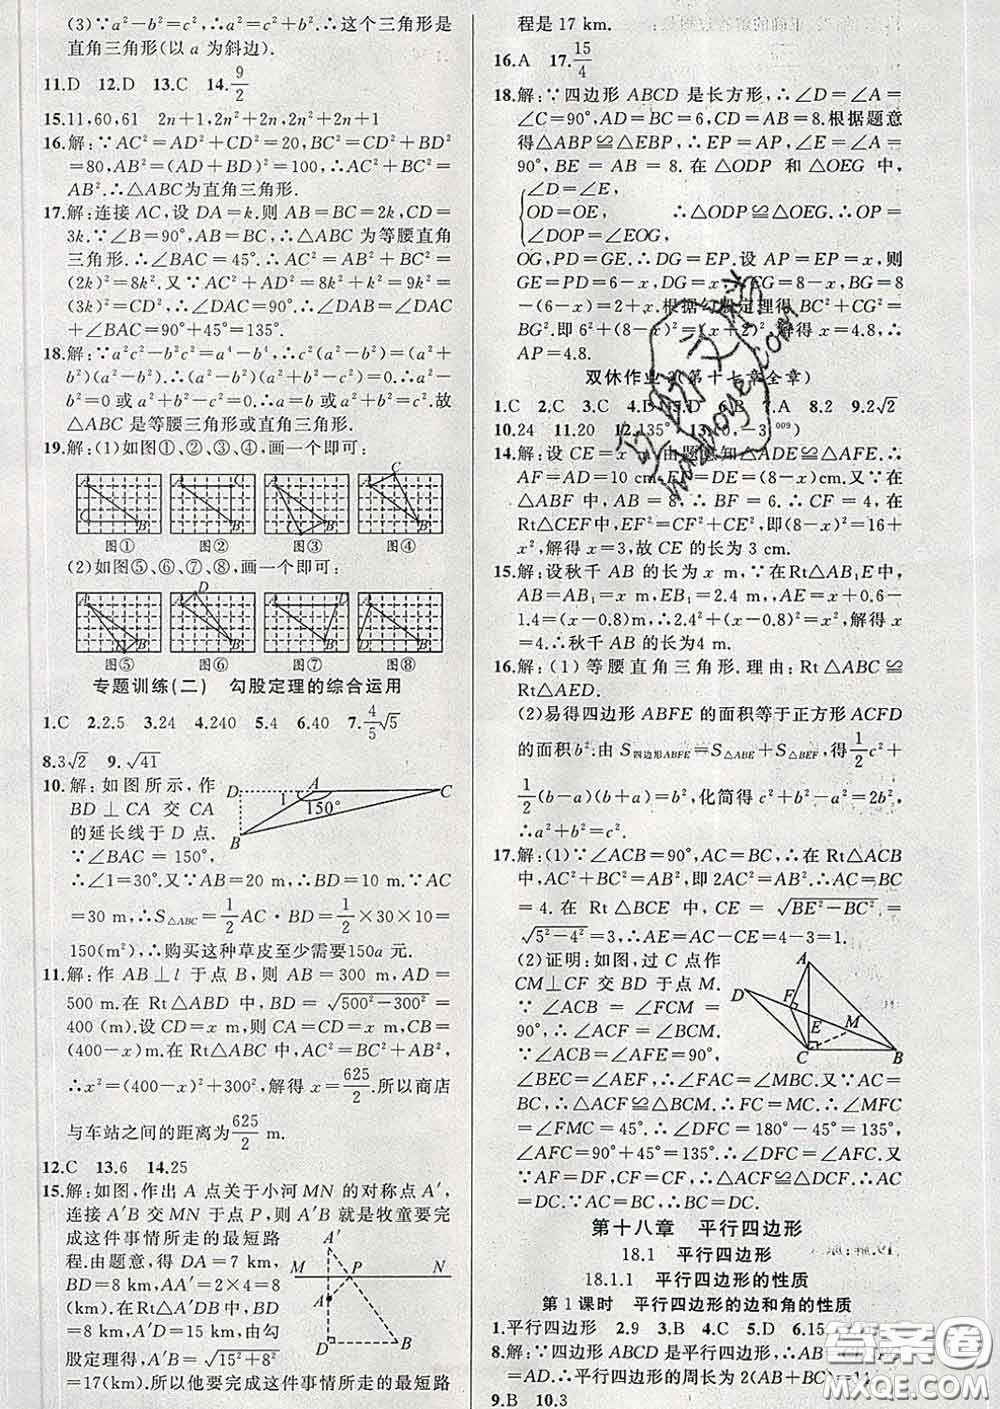 (3)∵a²−b²=c²,∴a²=b²+c².∴这个三角形是
直角三角形(以 a 为斜边).
11.D 12.D 13.C 14.9/2
15.11,60,61 2n+1,2n²+2n,2n²+2n+1
16.解:∵AC²=AD²+CD²=20,BC²=CD²+BD²
=80,AB²=(AD+BD)²=100,∴AC²+BC²=
AB².∴△ABC为直角三角形.
17.解:连接 AC,设 DA=k.则 AB=BC=2k,CD=
3k.∵∠B=90°,AB=BC,∴△ABC 为等腰直角
三角形.∴∠BAC=45°.∴AC²=AB²+BC²=
(2k)²+(2k)²=8k².又∵AC²+AD²=8k²+k²=9k²=
(3k)²=CD²,∴∠DAC=90°.∴∠DAB=∠DAC
+∠BAC=90°+45°=135°.
18.解:∵a²c²−b²c²=a⁴−b⁴,∴c²(a²−b²)=(a²+
b²)(a²−b²).∴(a²−b²)(a²+b²−c²)=0.∴a²−b²
=0 或a²+b²−c²=0.∴a=b 或a²+b²=c².故
△ABC是等腰三角形或直角三角形.
19.解:(1)如图①、②、③、④,画一个即可:
A B A C B A B C A B
图① 图② 图③ 图④
(2)如图⑤、⑥、⑦、⑧,画一个即可:
A B A D B A D B A D B
图⑤ 图⑥ 图⑦ 图⑧
专题训练(二) 勾股定理的综合运用
1.C 2.2.5 3.24 4.240 5.4 6.40 7.4/5√5
8.3√2 9.√41
10.解:如图所示,作
BD⊥CA 交 CA
的延长线于 D 点.
∵∠BAC=150°,
D A C 1 150° B
∴∠1=30°.又∵AB=20 m,∴BD=10 m.∵AC
=30 m,∴S△ABC=1/2AC·BD=1/2×30×10=
150(m²),∴购买这种草皮至少需要150a 元.
11.解:作 AB⊥l 于点 B,则 AB=300 m,AD=
500 m.在 Rt△ABD 中,BD=√(500²−300²)=
400 (m).设 CD=x m,则 AC=x m,CB=
(400−x)m.在 Rt△ABC 中,AC²=BC²+AB²,
∴x²=(400−x)²+300²,解得 x=625/2.所以商店
与车站之间的距离为625/2 m.
12.C 13.6 14.25
15.解:如图,作出 A 点关于小河 MN 的对称点 A′,
连接 A′B 交 MN 于点 P,则 A′B 就是牧童要完
成这件事情所走的最短路
程.由题意,得 DA=7 km,
BD=8 km,AA′=2×4=8
(km).在 Rt△A′DB 中,BD
=8 km,A′D=15 km,由勾
股定理得 A′B=√(15²+8²)
=17(km).所以他要完成这件事情所走的最短路
A′ M P N A D B
程是 17 km.
16.A 17.15/4
18.解:∵四边形 ABCD 是长方形,∴∠D=∠A=
∠C=90°,AD=BC=6,CD=AB=8.根据题意
得△ABP≌△EBP,∴EP=AP,∠E=∠A=
90°,BE = AB = 8.在△ODP 和△OEG 中,
∠D=∠E,
OD=OE, ∴△ODP≌△OEG.∴OP=
∠DOP=∠EOG,
OG,PD=GE.∴DG=EP.设 AP=EP=x,则
GE=PD=6−x,DG=x.∴CG=8−x,BG=8
−(6−x)=2+x.根据勾股定理得 BC²+CG²=
BG².即 6²+(8−x)²=(x+2)².解得 x=4.8,∴
AP=4.8.
双休作业 (第十七章全章)
1.C 2.C 3.C 4.D 5.D 6.B 7.A 8.2 9.2√2
10.24 11.20 12.135° 009
14.解:设 CE=x m,由题意知△ADE≌△AFE.∴
AF=AD=10 cm.EF=DE=(8−x)cm.又∵在
△ABF 中,AB=8,∴BF=6.∴CF=4,在
Rt△CEF中,EF²=CF²+CE²,即(8−x)²=16+
x²,解得 x=3,故 CE 的长为 3 cm.
15.解:设秋千 AB 的长为 x m,∵在Rt△AB₁E中,
AB=AB₁=x m,EB₁=2.4 m,AE=x+0.6−
1.4=(x−0.8)m,∴2.4²+(x−0.8)²=x²,解得 x
=4.∴秋千 AB 的长为4 m.
16.解:(1)等腰直角三角形.理由:Rt△ABC≌
Rt△AED.
(2)易得四边形 ABFE 的面积等于正方形 ACFD
的面积b².由 S四边形ABFE=S△ABE+S△BEF,得1/2c²+
1/2(b−a)(b+a)=b²,化简得 c²+b²−a²=2b²,
∴a²+b²=c².
17.解:(1)∵∠ACB=90°,AC=BC,∴在 Rt△ACB
中,AC²+BC²=AB²,即 2AC²=(4√2)².∴AC=BC
=4.在 Rt△BCE 中,CE=√(BE²−BC²)=
√(5²−4²)=3.∴AE=AC−CE=4−3=1.
(2)证明:如图,过 C 点作
CM⊥CF 交 BD 于点 M.
∵∠ACB=∠FCM=
90°,∴∠ACF=∠BCM.
∵∠ACB=∠AFE=90°,
∠BEC=∠AEF,∴∠FAC=∠MBC.又∵AC=
BC,∴△ACF≌△BCM.∴FC=MC.∴∠MFC
=∠FMC=45°.∴∠DFC=180°−45°=135°,
∠AFC=90°+45°=135°.∴∠AFC=∠DFC.又
∵AF=DF,CF=CF,∴△ACF≌△DCF,∴AC=
DC.∵AC=BC,∴BC=DC.
A D F M E C B
第十八章 平行四边形
18.1 平行四边形
18.1.1 平行四边形的性质
第 1 课时 平行四边形的边和角的性质
1.平行四边形 2.9 3.B 4.C 5.D 6.15
8.解:∵四边形 ABCD 是平行四边形,∴AB=DC,
AD=BC,∴平行四边形的周长为 2(AB+BC)=14
9.B 10.3
答案圈
MXQE.COM